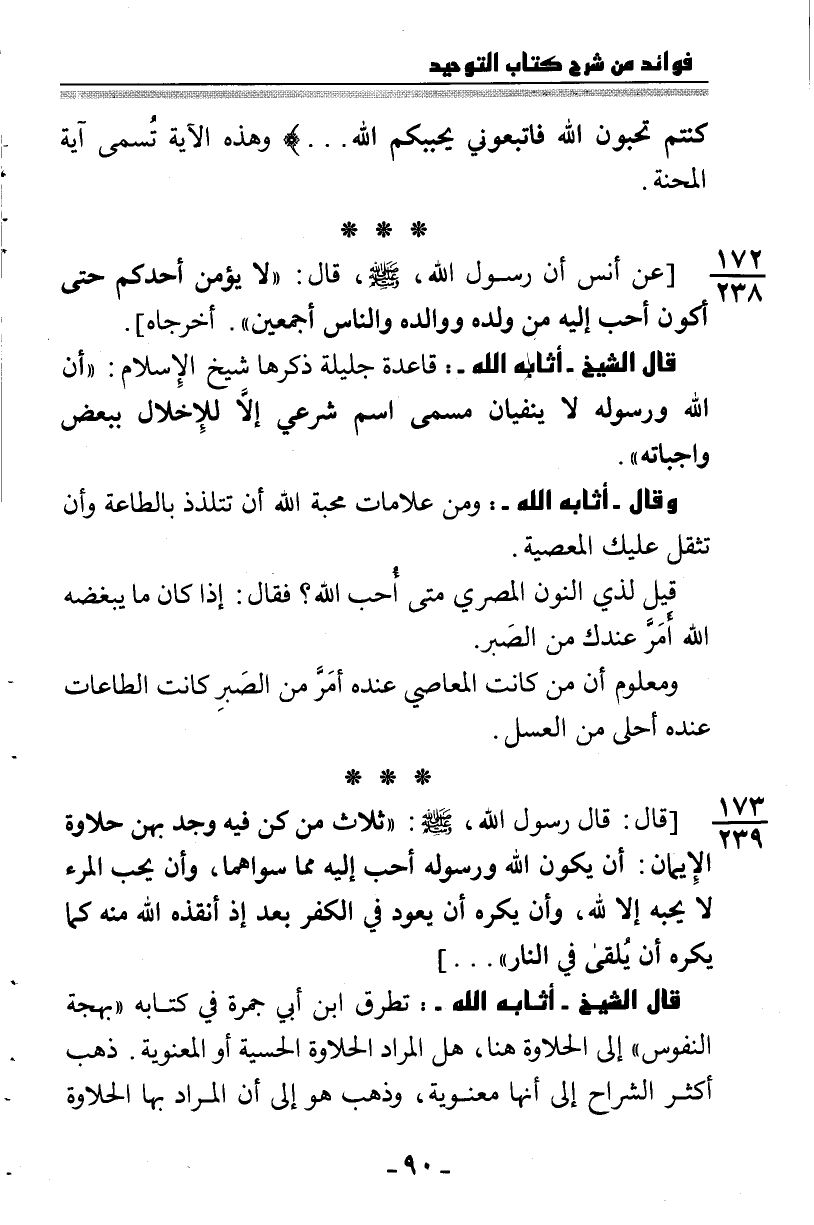 فوائد من شرح كتاب التوحيد
كنتم تحبون الله فاتبعوني يحببكم الله...﴾ وهذه الآية تُسمى آية
المحنة.
* * *
١٧٢
٢٣٨
[عن أنس أن رسول الله، ﷺ، قال: «لا يؤمن أحدكم حتى
أكون أحب إليه من ولده ووالده والناس أجمعين». أخرجاه].
قال الشيخ - أثابه الله -: قاعدة جليلة ذكرها شيخ الإسلام: «أن
الله ورسوله لا ينفيان مسمى اسم شرعي إلاَّ للإخلال ببعض
واجباته».
وقال - أثابه الله -: ومن علامات محبة الله أن تتلذذ بالطاعة وأن
تثقل عليك المعصية.
قيل لذي النون المصري متى أُحب الله؟ فقال: إذا كان ما يبغضه
الله أَمَرَّ عندك من الصَبر.
ومعلوم أن من كانت المعاصي عنده أمَرَّ من الصَبِرِ كانت الطاعات
عنده أحلى من العسل.
* * *
١٧٣
٢٣٩
[قال: قال رسول الله، ﷺ: «ثلاث من كن فيه وجد بهن حلاوة
الإيمان: أن يكون الله ورسوله أحب إليه مما سواهما، وأن يحب المرء
لا يحبه إلا لله، وأن يكره أن يعود في الكفر بعد إذ أنقذه الله منه كما
يكره أن يُلقىٰ في النار»...]
قال الشيخ - أثابه الله -: تطرق ابن أبي جمرة في كتابه «بهجة
النفوس» إلى الحلاوة هنا، هل المراد الحلاوة الحسية أو المعنوية. ذهب
أكثر الشراح إلى أنها معنوية، وذهب هو إلى أن المراد بها الحلاوة
- ٩٠ -